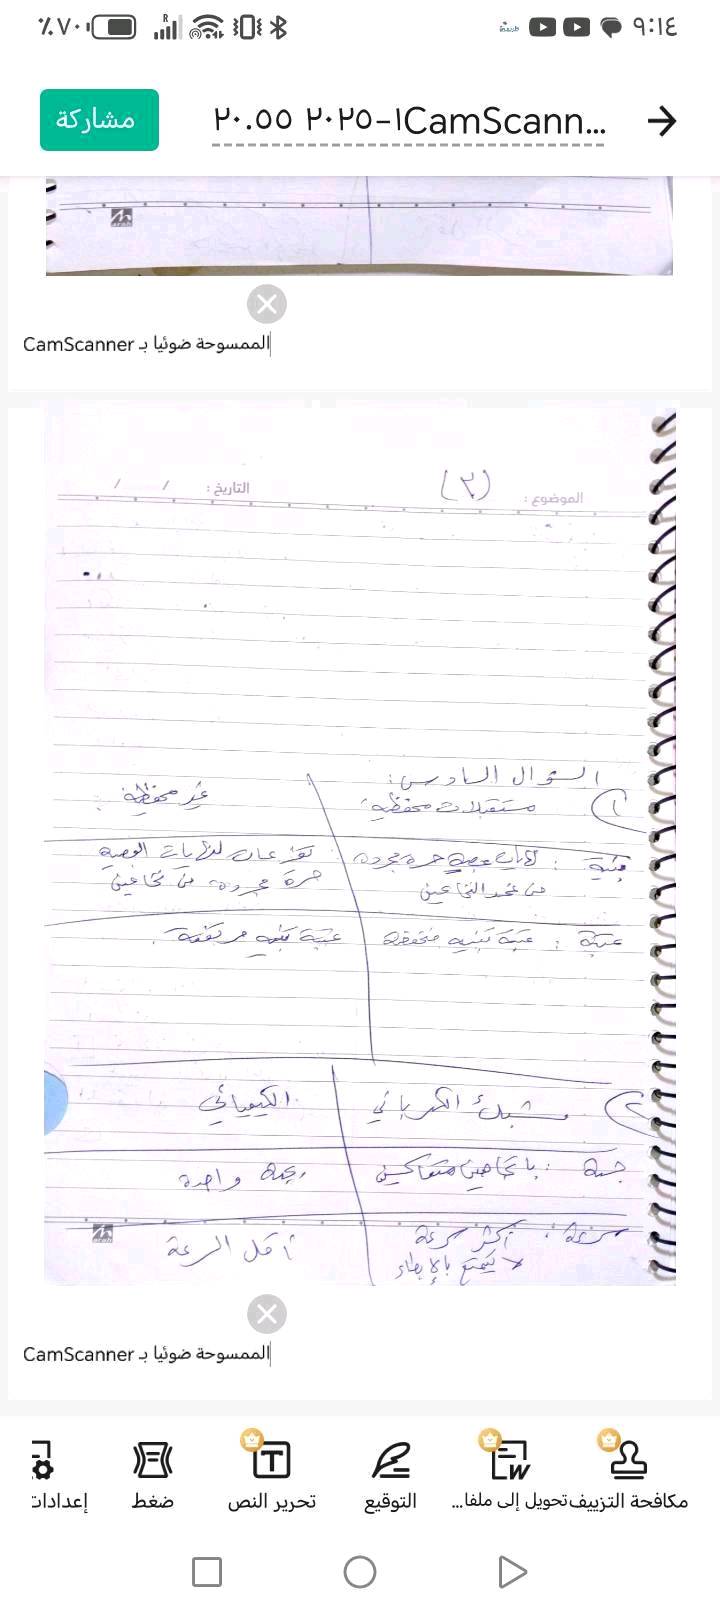 ٪٧٠
٩:١٤
مشاركة
CamScann...١-٢٠٢٥ ٢٠.٥٥
الممسوحة ضوئيا بـ CamScanner
الموضوع : (٣)
التاريخ : / /
السؤال السادس:
١) مستقبلات محفظية: غير محفظية:
بنية : نهايات عصبية حرة مجردة
من غمد النخاعين
تفرعان لنهايات العصبية
حرة مجردة من نخاعين
عتبة : عتبة تنبيه منخفضة عتبة تنبيه مرتفعة.
٢) مشبك الكهربائي الكيميائي
جهة : باتجاهين متعاكسين بجهة واحدة
سرعة : أكثر سرعة أقل السرعة
لا يتمتع بالإبطاء
الممسوحة ضوئيا بـ CamScanner
مكافحة التزييف
تحويل إلى ملفا...
التوقيع
تحرير النص
ضغط
إعدادات